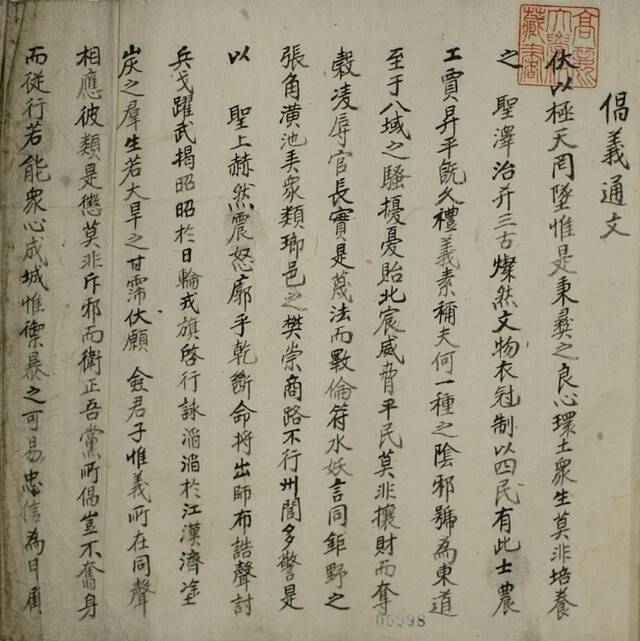 倡義通文
伏以極天罔墜惟是秉彛之良心環土衆生莫非培養
之　聖澤治并三古燦然文物衣冠制以四民有此士農
工賈昇平旣久禮義素稱夫何一種之陰邪號爲東道
至于八域之騷擾憂貽北宸威脅平民莫非攘財而奪
穀凌辱官長實是蔑法而斁倫符水妖言同鉅野之
張角潢池弄衆類瑯邑之樊崇商路不行州閭多警是
以　聖上赫然震怒廓乎乾斷命將出師布誥聲討
兵戈躍武揭昭昭於日輪戎旗啓行詠滔滔於江漢濟塗
炭之羣生若大旱之甘霈伏願　僉君子惟義所在同聲
相應彼類是懲莫非斥邪而衛正吾黨所倡豈不奮身
而從行若能衆心成城惟禦暴之可易忠信爲甲胄
高麗大學校藏書
05998